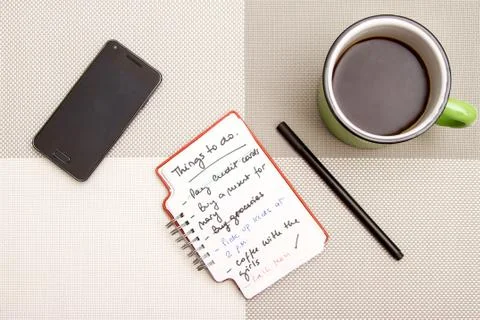 Things to do.
- Pay credit cards
- Buy a present for
Mary
- Buy groceries
- Pick up kids at
2 PM
- coffee with the
girls ✓
Call Mom